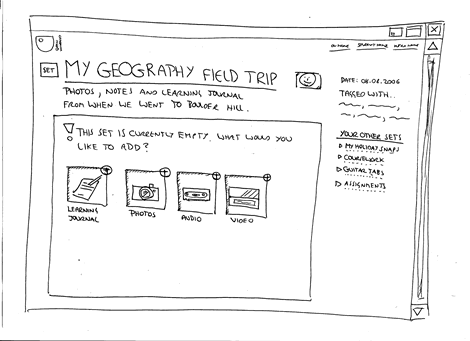 SET
MY GEOGRAPHY FIELD TRIP
PHOTOS, NOTES AND LEARNING JOURNAL
FROM WHEN WE WENT TO BOULDER HILL.
! THIS SET IS CURRENTLY EMPTY. WHAT WOULD YOU
LIKE TO ADD?
LEARNING
JOURNAL
PHOTOS
AUDIO
VIDEO
DATE: 08.08.2006
TAGGED WITH...
YOUR OTHER SETS
MY HOLIDAY SNAPS
COURSEWORK
GUITAR TABS
ASSIGNMENTS